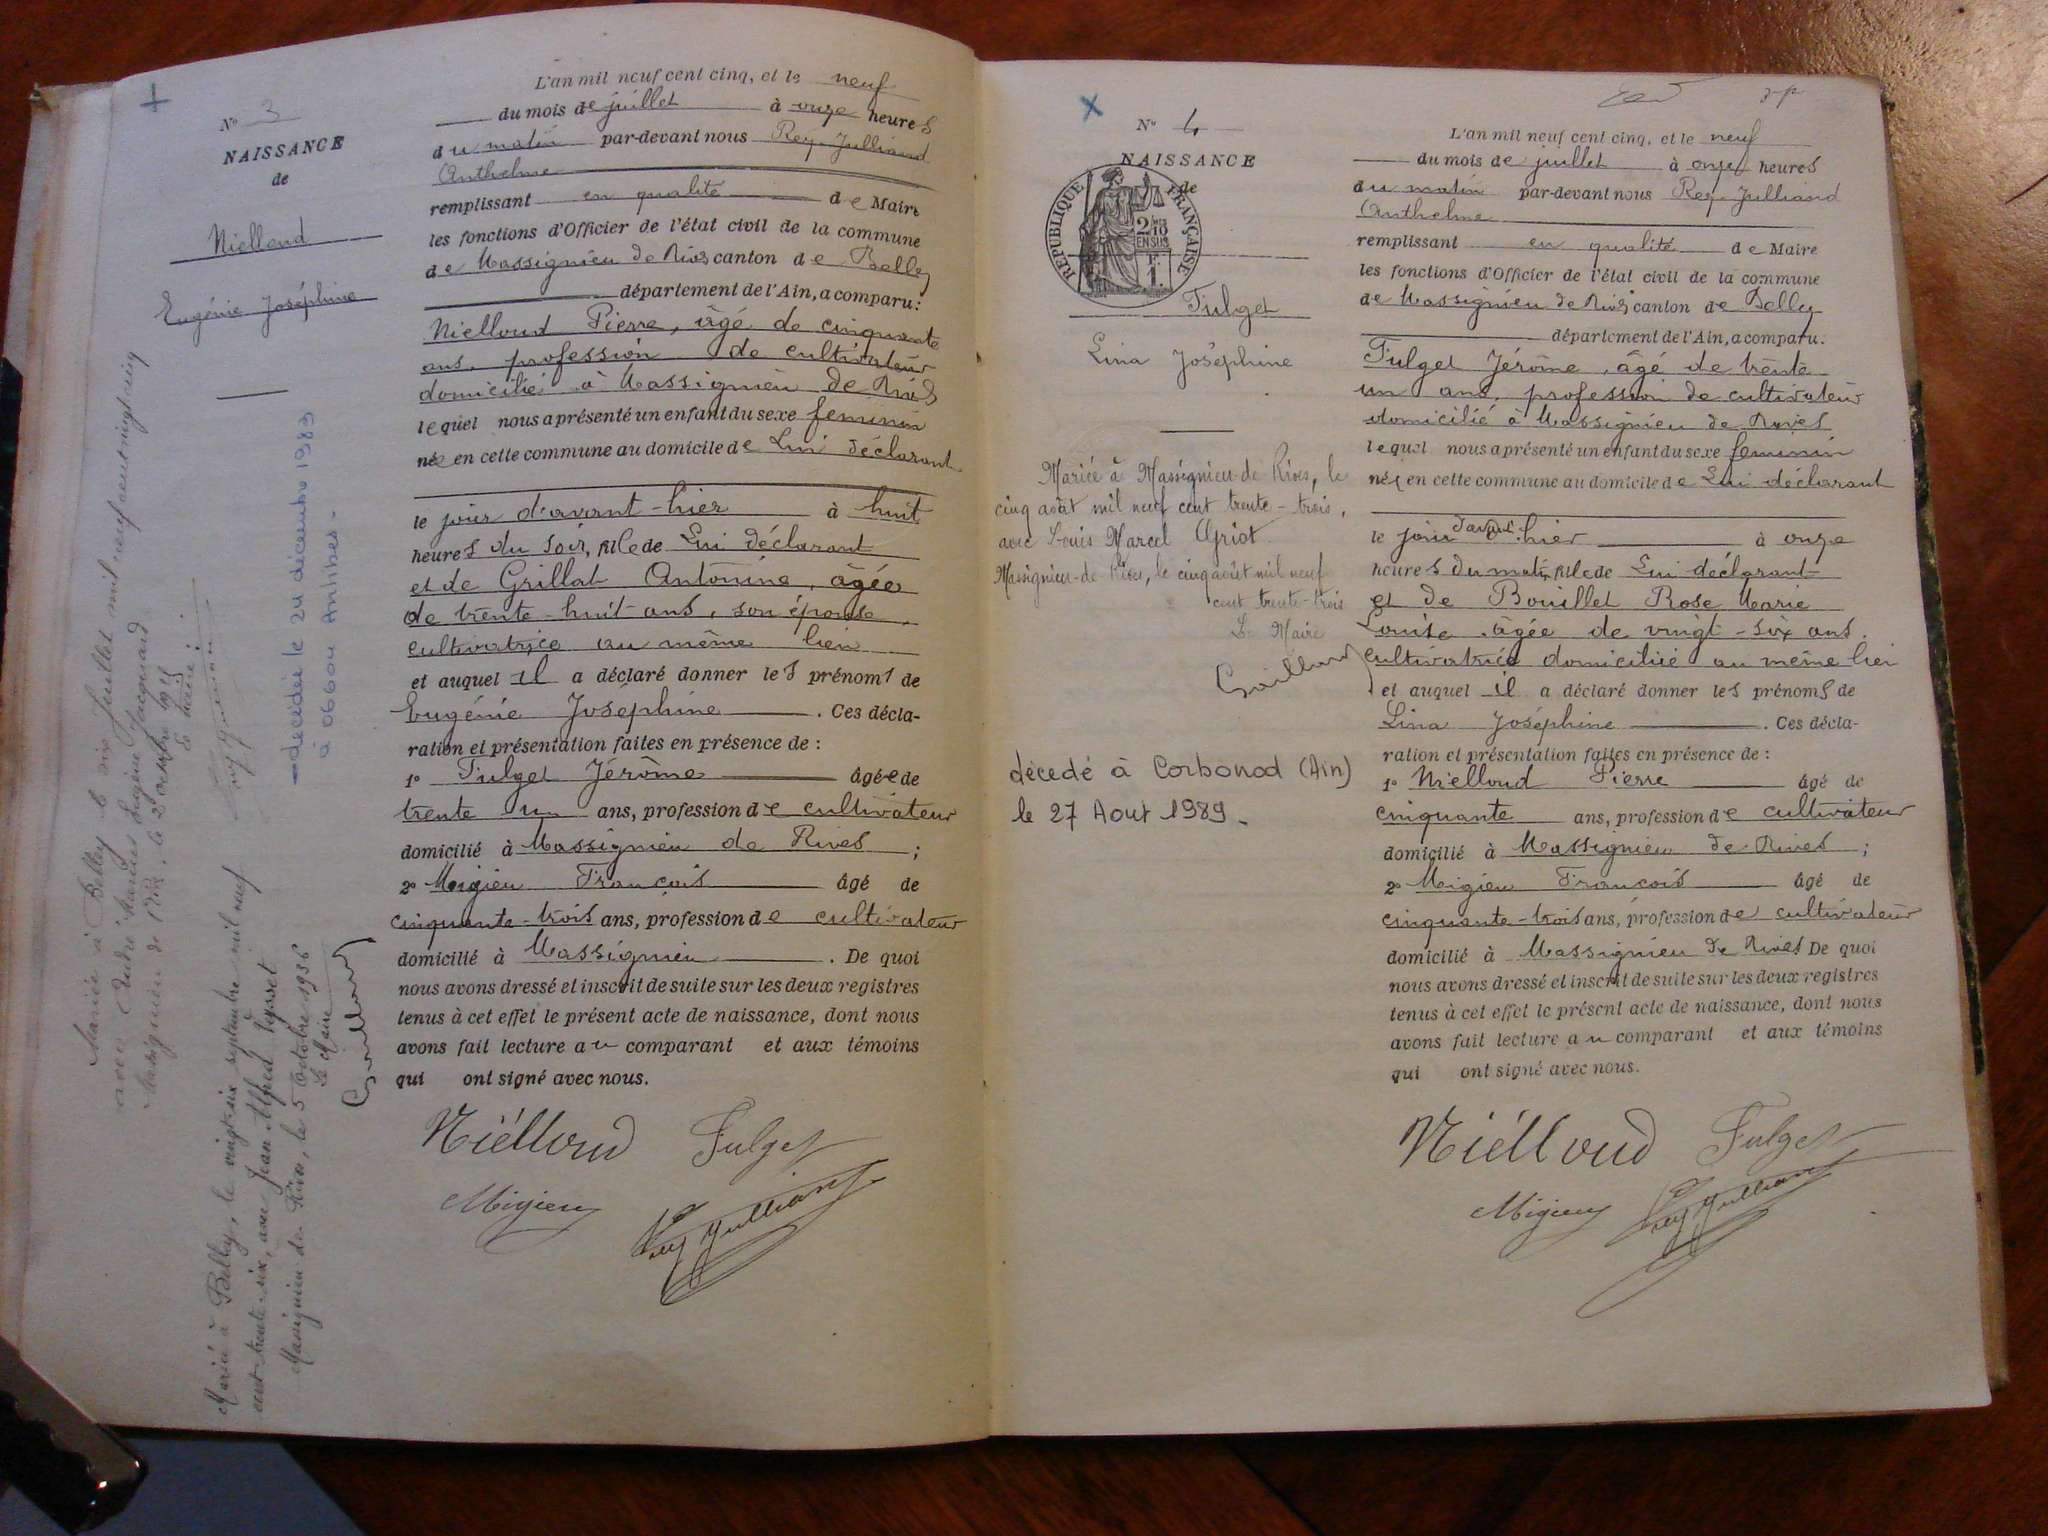 N° 3
NAISSANCE
de
Niélloud
Eugénie Joséphine
décédée le 24 décembre 1983
à 06600 Antibes -
Mariée à Belley le dix juillet mil neuf cent vingt cinq
avec André Eugène Jacquand
Massignieu de Rives, le 2 octobre
Le Maire :
Mariée à Belley, le vingt-six septembre mil neuf
cent trente-six, avec Jean Alfred
Massignieu de Rives, le 5 octobre 1936
Le Maire
Gaillard
L'an mil neuf cent cinq, et le neuf
du mois de juillet à onze heures
du matin par-devant nous Rey-Julliand
Anthelme
remplissant en qualité de Maire
les fonctions d'Officier de l'état civil de la commune
de Massignieu de Rives canton de Belley
département de l'Ain, a comparu :
Niélloud Pierre, âgé de cinquante
ans, profession de cultivateur
domicilié à Massignieu de Rives
lequel nous a présenté un enfant du sexe feminin
née en cette commune au domicile de Lui déclarant
le jour d'avant-hier à huit
heures du soir, fille de Lui déclarant
et de Grillat Antonine, âgée
de trente-huit ans, son épouse,
cultivatrice au même lieu
et auquel il a déclaré donner les prénoms de
Eugénie Joséphine . Ces décla-
ration et présentation faites en présence de :
1° Fulget Jérôme âgé de
trente un ans, profession de cultivateur
domicilié à Massignieu de Rives ;
2° Migieu François âgé de
cinquante-trois ans, profession de cultivateur
domicilié à Massignieu . De quoi
nous avons dressé et inscrit de suite sur les deux registres
tenus à cet effet le présent acte de naissance, dont nous
avons fait lecture au comparant et aux témoins
qui ont signé avec nous.
Niélloud Fulget
Migieu Rey Julliand
N° 4
NAISSANCE
de
RÉPUBLIQUE FRANÇAISE
2/10
EN SUS
1F.
Fulget
Lina Joséphine
Mariée à Massignieu-de-Rives, le
cinq août mil neuf cent trente-trois,
avec Louis Marcel Griot
Massignieu-de-Rives, le cinq août mil neuf
cent trente-trois
Le Maire
Gaillard
décedé à Corbonod (Ain)
le 27 Aout 1989 -
L'an mil neuf cent cinq, et le neuf
du mois de juillet à onze heures
du matin par-devant nous Rey-Julliand
Anthelme
remplissant en qualité de Maire
les fonctions d'Officier de l'état civil de la commune
de Massignieu de Rives canton de Belley
département de l'Ain, a comparu :
Fulget Jérôme, âgé de trente
un ans, profession de cultivateur
domicilié à Massignieu de Rives
lequel nous a présenté un enfant du sexe feminin
née en cette commune au domicile de Lui déclarant
le jour d'avant-hier à onze
heures du matin, fille de Lui déclarant
et de Bouillet Rose Marie
Louise, âgée de vingt-six ans,
cultivatrice domiciliée au même lieu
et auquel il a déclaré donner les prénoms de
Lina Joséphine . Ces décla-
ration et présentation faites en présence de :
1° Niélloud Pierre âgé de
cinquante ans, profession de cultivateur
domicilié à Massignieu de Rives ;
2° Migieu François âgé de
cinquante-trois ans, profession de cultivateur
domicilié à Massignieu de Rives De quoi
nous avons dressé et inscrit de suite sur les deux registres
tenus à cet effet le présent acte de naissance, dont nous
avons fait lecture au comparant et aux témoins
qui ont signé avec nous.
Niélloud Fulget
Migieu Rey Julliand